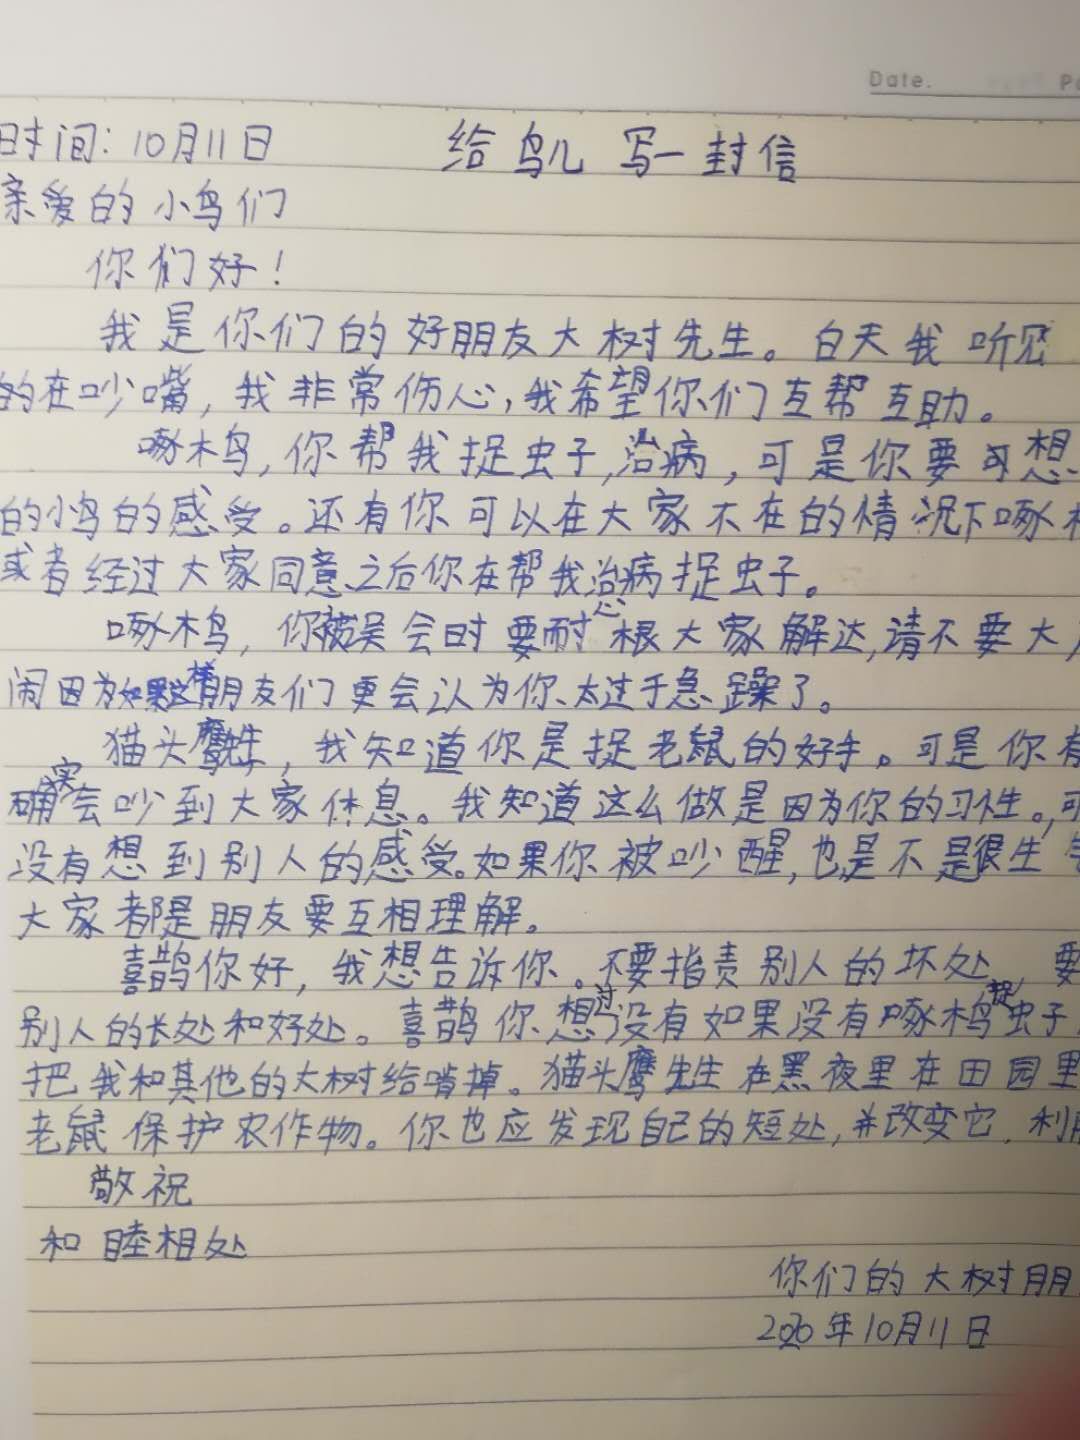 Date.
时间:10月11日 给鸟儿写一封信
亲爱的小鸟们
你们好!
我是你们的好朋友大树先生。白天我听见
的在吵嘴,我非常伤心,我希望你们互帮互助。
啄木鸟,你帮我捉虫子,治病,可是你要可想
的小鸟的感受。还有你可以在大家不在的情况下啄
或者经过大家同意之后你在帮我治病捉虫子。
啄木鸟,你被吴会时要耐心根大家解达,请不要大
闹因为如果这样朋友们更会认为你太过于急躁了。
猫头鹰先生,我知道你是捉老鼠的好手。可是你有
确实会吵到大家休息。我知道这么做是因为你的习性。,可
没有想到别人的感受。如果你被吵醒,也是不是很生
大家都是朋友要互相理解。
喜鹊你好,我想告诉你。不要指责别人的坏处,要
别人的长处和好处。喜鹊你想过没有如果没有啄木鸟捉虫子
把我和其他的大树给啃掉。猫头鹰先生在黑夜里在田园里
老鼠保护农作物。你也应发现自己的短处,并改变它.利
敬祝
和睦相处
你们的大树朋
2020年10月11日